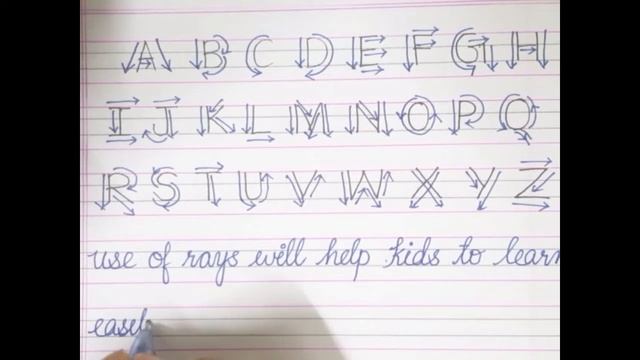 A B C D E F G H
I J K L M N O P Q
R S T U V W X Y Z
use of rays will help kids to learn
easel